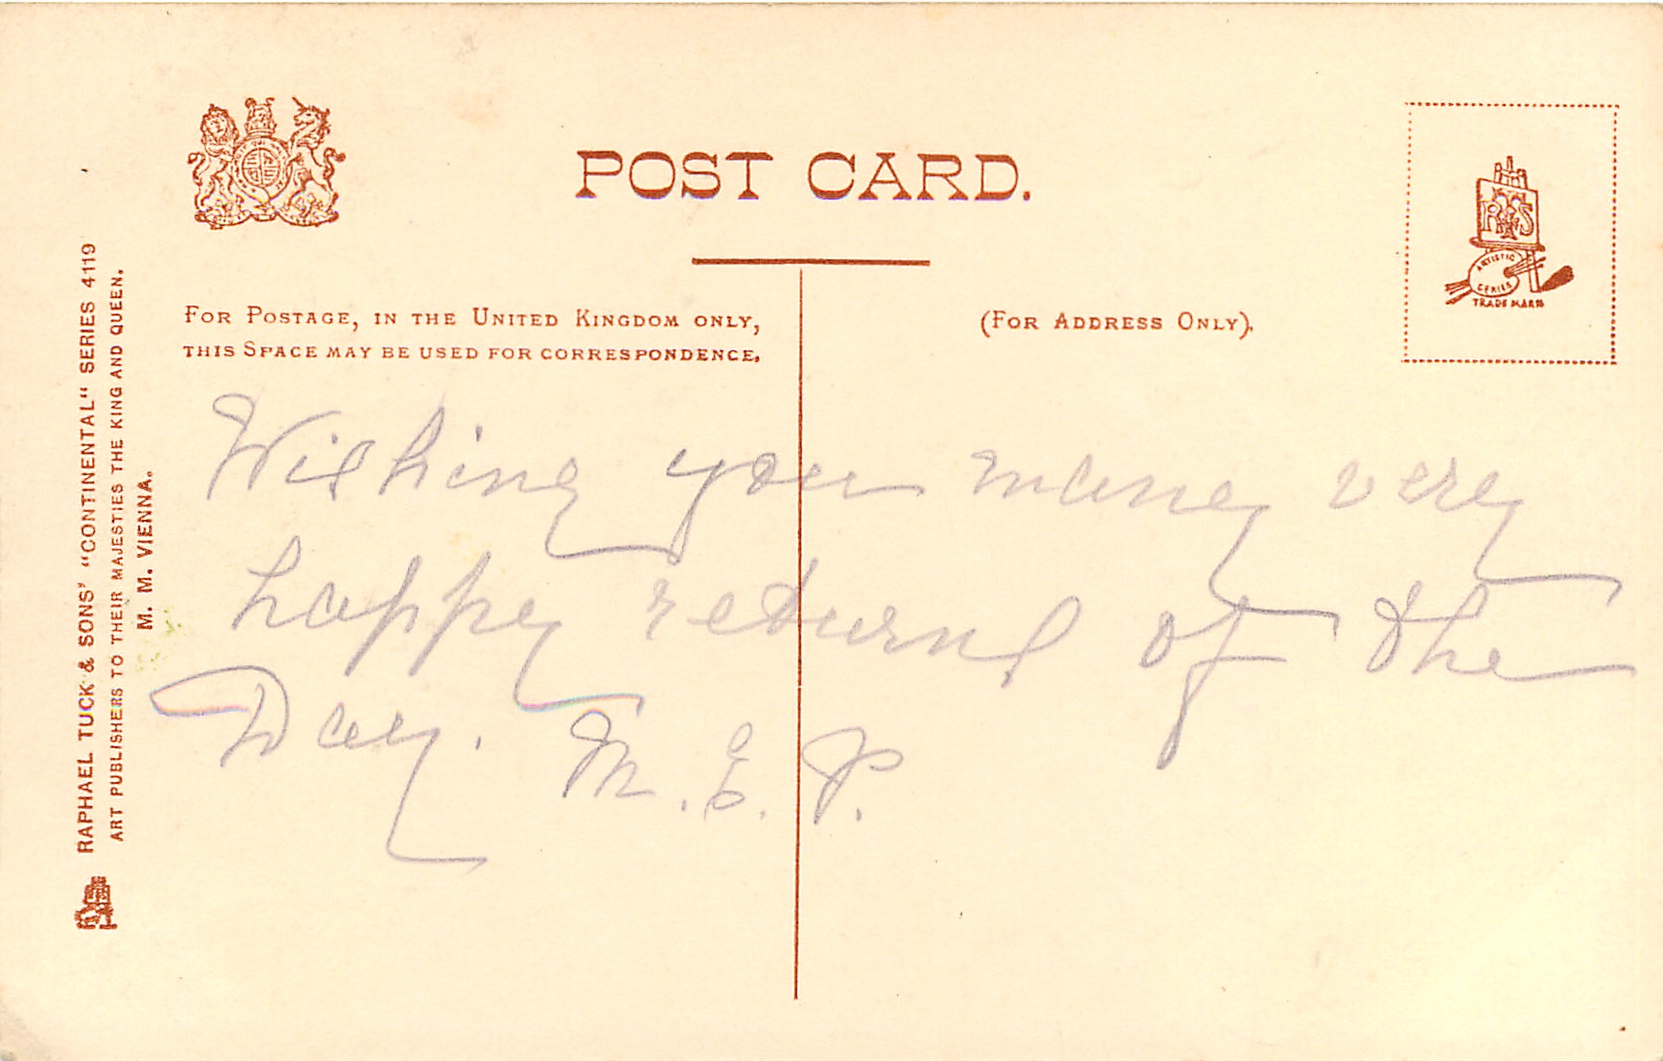 POST CARD.
FOR POSTAGE, IN THE UNITED KINGDOM ONLY,
THIS SPACE MAY BE USED FOR CORRESPONDENCE.
(FOR ADDRESS ONLY).
ARTISTIC
SERIES
TRADE MARK
Wishing you many very
happy returns of the
Day. M. E. P.
RAPHAEL TUCK & SONS' "CONTINENTAL" SERIES 4119
ART PUBLISHERS TO THEIR MAJESTIES THE KING AND QUEEN.
M. M. VIENNA.